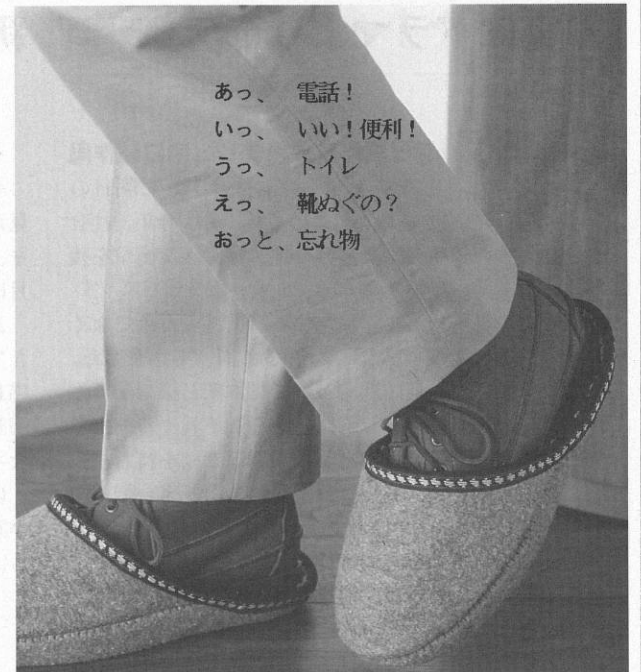 あっ、 電話！
いっ、 いい！便利！
うっ、 トイレ
えっ、 靴ぬぐの？
おっと、忘れ物